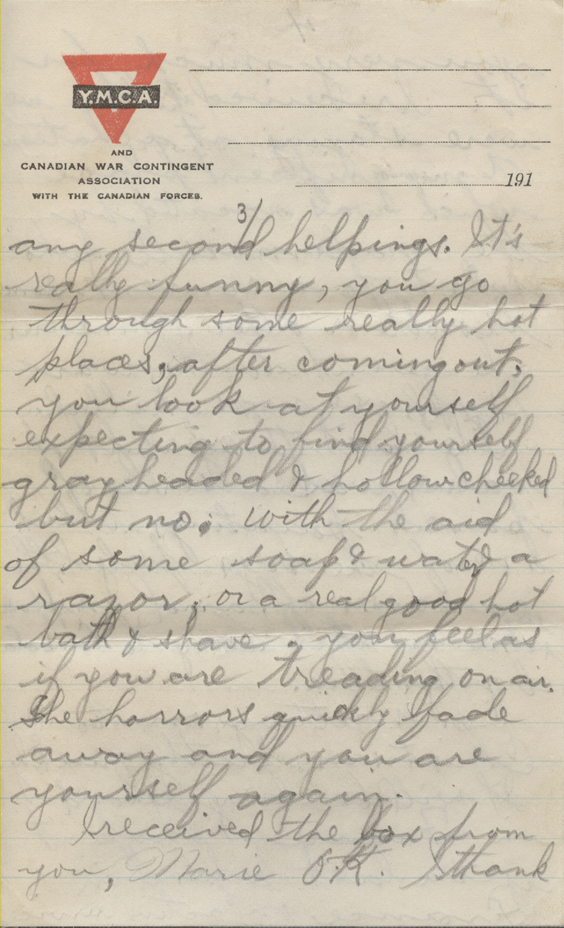 Y.M.C.A.
AND
CANADIAN WAR CONTINGENT
ASSOCIATION
WITH THE CANADIAN FORCES.
191
3/
any second helpings. It's
really funny, you go
through some really hot
places, after coming out,
you look at yourself
expecting to find yourself
grayheaded & hollowcheeked
but no. With the aid
of some soap & water & a
razor, or a real good hot
bath & shave, you feel as
if you are treading on air.
The horrors quickly fade
away and you are
yourself again.
I received the box from
you, Marie O.K. I thank